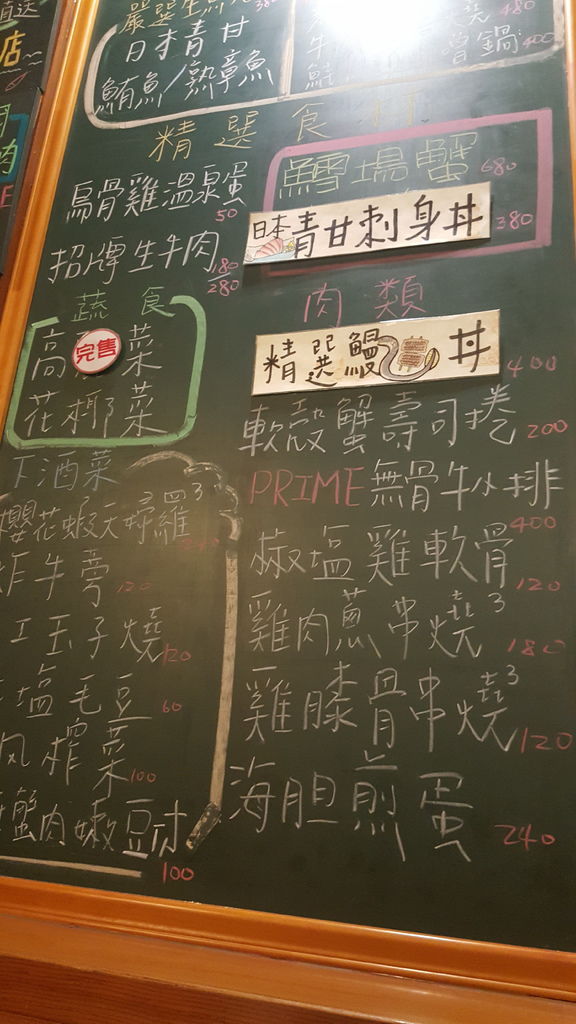 直送
店
日本青甘
鮪魚/熟章魚
鍋 400
480
精選食
烏骨雞溫泉蛋
50
招牌生牛肉
180
280
鱈場蟹 680
日本青甘刺身丼 380
蔬食
高 完售 菜
花椰菜
肉類
精選鰻丼 400
軟殼蟹壽司捲 200
PRIME無骨牛小排
400
椒塩雞軟骨
120
雞肉蔥串燒 3
180
雞膝骨串燒 3
120
海胆煎蛋
240
下酒菜
櫻花蝦天婦羅 3
炸牛蒡 120
玉子燒 120
塩毛豆 60
榨菜 100
蟹肉嫩豆腐
100